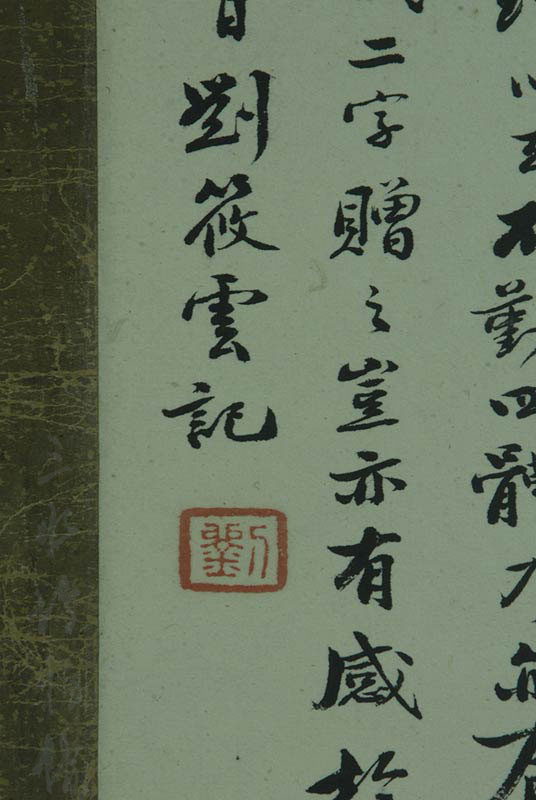 以至不勤四體
二字贈之豈亦有感於
日劉筱雲記
劉